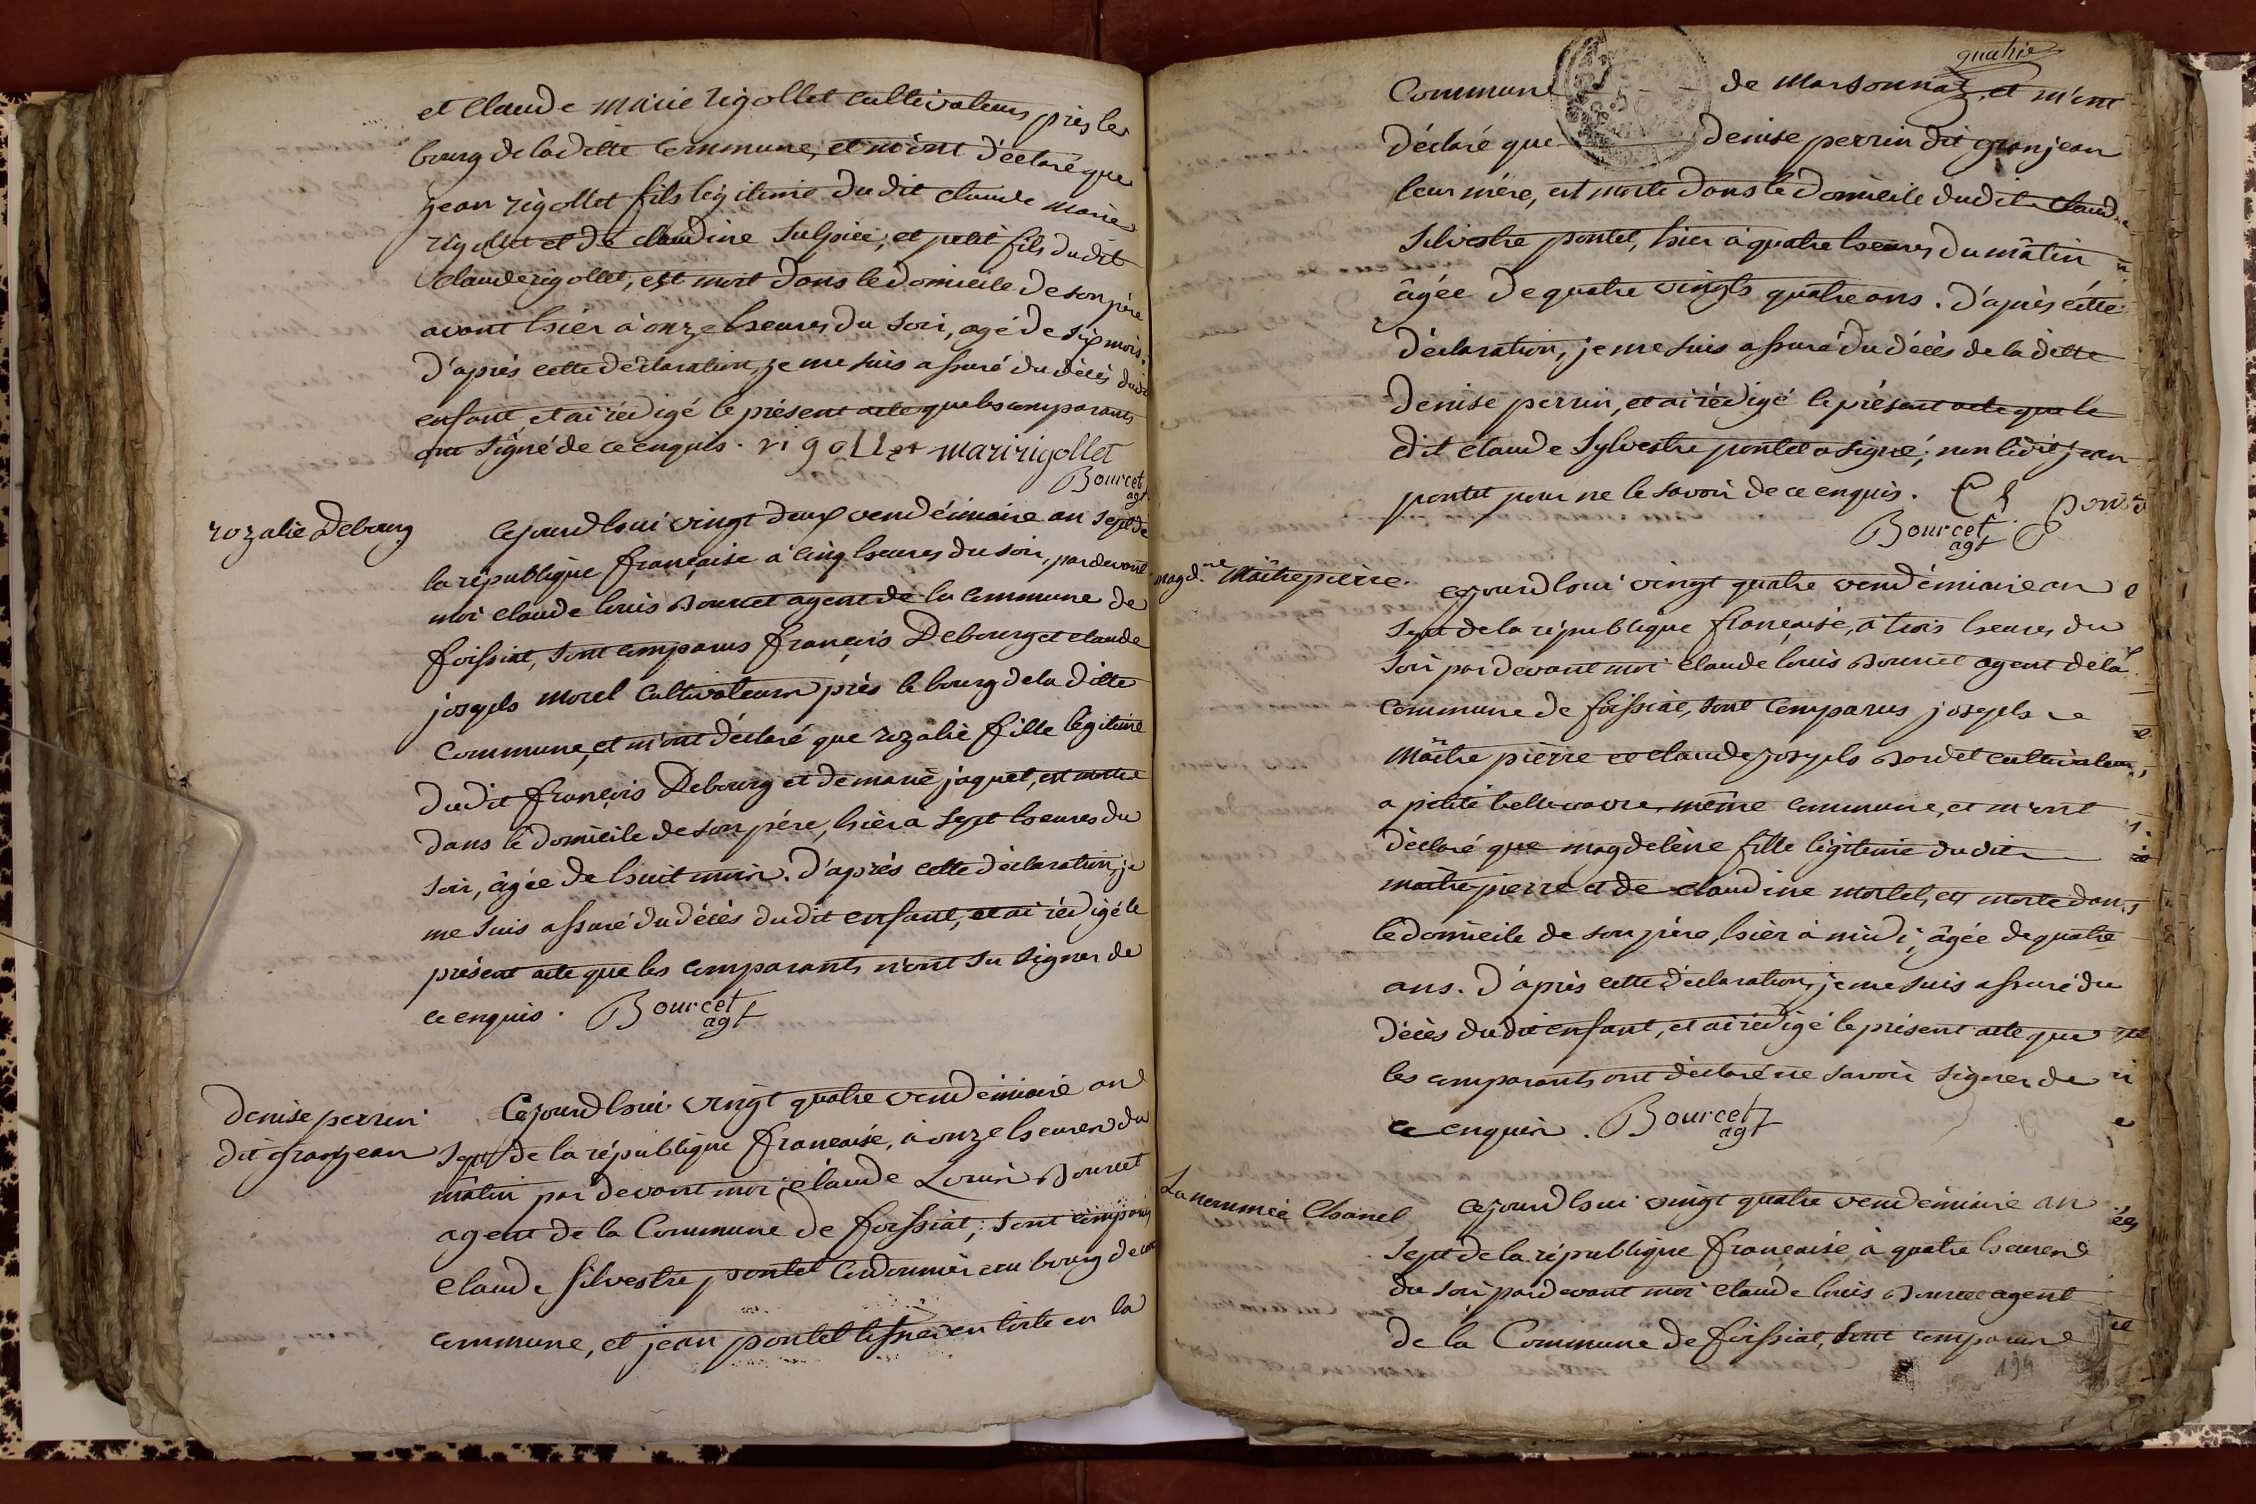 et Claude Marie rigollet cultivateurs près le
bourg de la ditte commune, et m'ont déclaré que
jean rigollet fils légitime du dit Claude Marie
rigollet et de claudine Sulpice, et petit fils du dit
Claude rigollet, est mort dans le domicile de son père
avant hier à onze heures du soir, agé de six mois.
D'après cette déclaration, je me suis assuré du décès dudit
enfant, et ai rédigé le présent acte que les comparants
ont signé de ce enquis. rigollet maririgollet
Bourcet
agt
rozalie Debourg
Cejourdhui vingt deux vendémiaire an sept de
la république française à cinq heures du soir, pardevant
moi claude louis Bourcet agent de la commune de
foissiat, sont comparus françois Debourg et claude
joseph morel cultivateurs près le bourg de la ditte
commune, et m'ont déclaré que rozalie fille légitime
dudit françois Debourg et de marie jaquet, est morte
dans le domicile de son père, hier à sept heures du
soir, âgée de huit mois. D'après cette déclaration, je
me suis assuré du décès dudit enfant, et ai rédigé le
présent acte que les comparants n'ont su signer de
ce enquis. Bourcet
agt
Denise perrin
dit granjean
Cejourdhui vingt quatre vendémiaire an
sept de la république française, à onze heures du
mâtin par devant moi claude Louis Bourcet
agent de la Commune de foissiat, sont comparus
claude silvestre pontet cordonnier au bourg de
commune, et jean pontet tissier en toile en la
quatre
Commune de Marsonnaz, et m'ont
déclaré que denise perrin dit granjean
leur mère, est morte dans le domicile dudit Claude
Silvestre pontet, hier à quatre heures du mâtin
âgée de quatre vingts quatre ans. D'après cette
déclaration, je me suis assuré du décès de la ditte
denise perrin, et ai rédigé le présent acte que le
dit claude Sylvestre pontet a signé; non ledit jean
pontet pour ne le savoir de ce enquis. Cl pont
Bourcet
agt
magd.ne Maîtrepierre.
cejourdhui vingt quatre vendémiaire an
sept de la république française, à trois heures du
soir pardevant moi claude louis Bourcet agent de la
commune de foissiat, sont comparus joseph
Maître pierre et claude joseph Bordet cultivateurs
a petite bellevavre même commune, et m'ont
déclaré que magdeleine fille légitime dudit
maitre pierre et de claudine mortel, est morte dans
le domicile de son père, hier à midi, âgée de quatre
ans. D'après cette déclaration, je me suis assuré du
décès dudit enfant, et ai rédigé le présent acte que
les comparants ont déclaré ne savoir signer de
ce enquis. Bourcet
agt
La nommée Chanel
cejourdhui vingt quatre vendémiaire an
sept de la république française à quatre heures
du soir pardevant moi claude louis Bourcet agent
de la Commune de foissiat, sont comparus
194